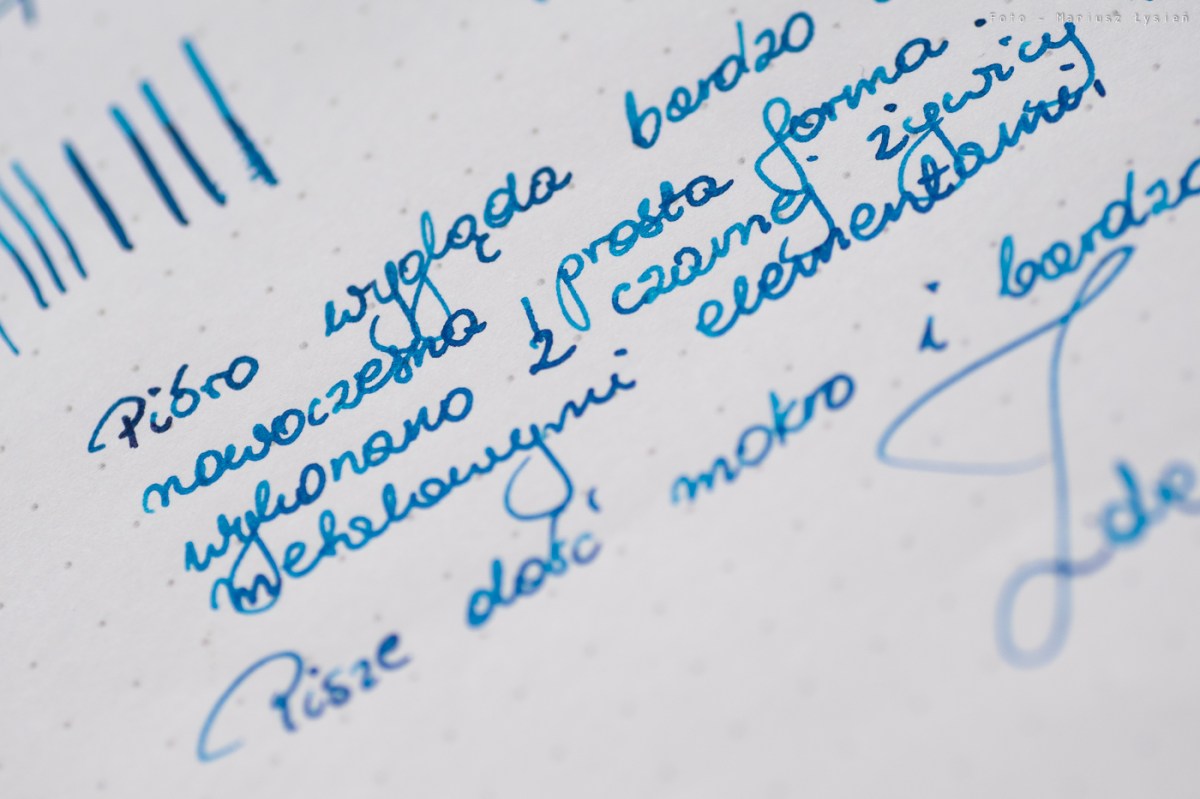 Foto - Mariusz Łysień
Pióro wygląda bardzo
nowoczesna i prosta forma.
wykonano z czarnej żywicy
metalowymi elementami,
Pisze dość mokro i bardzo